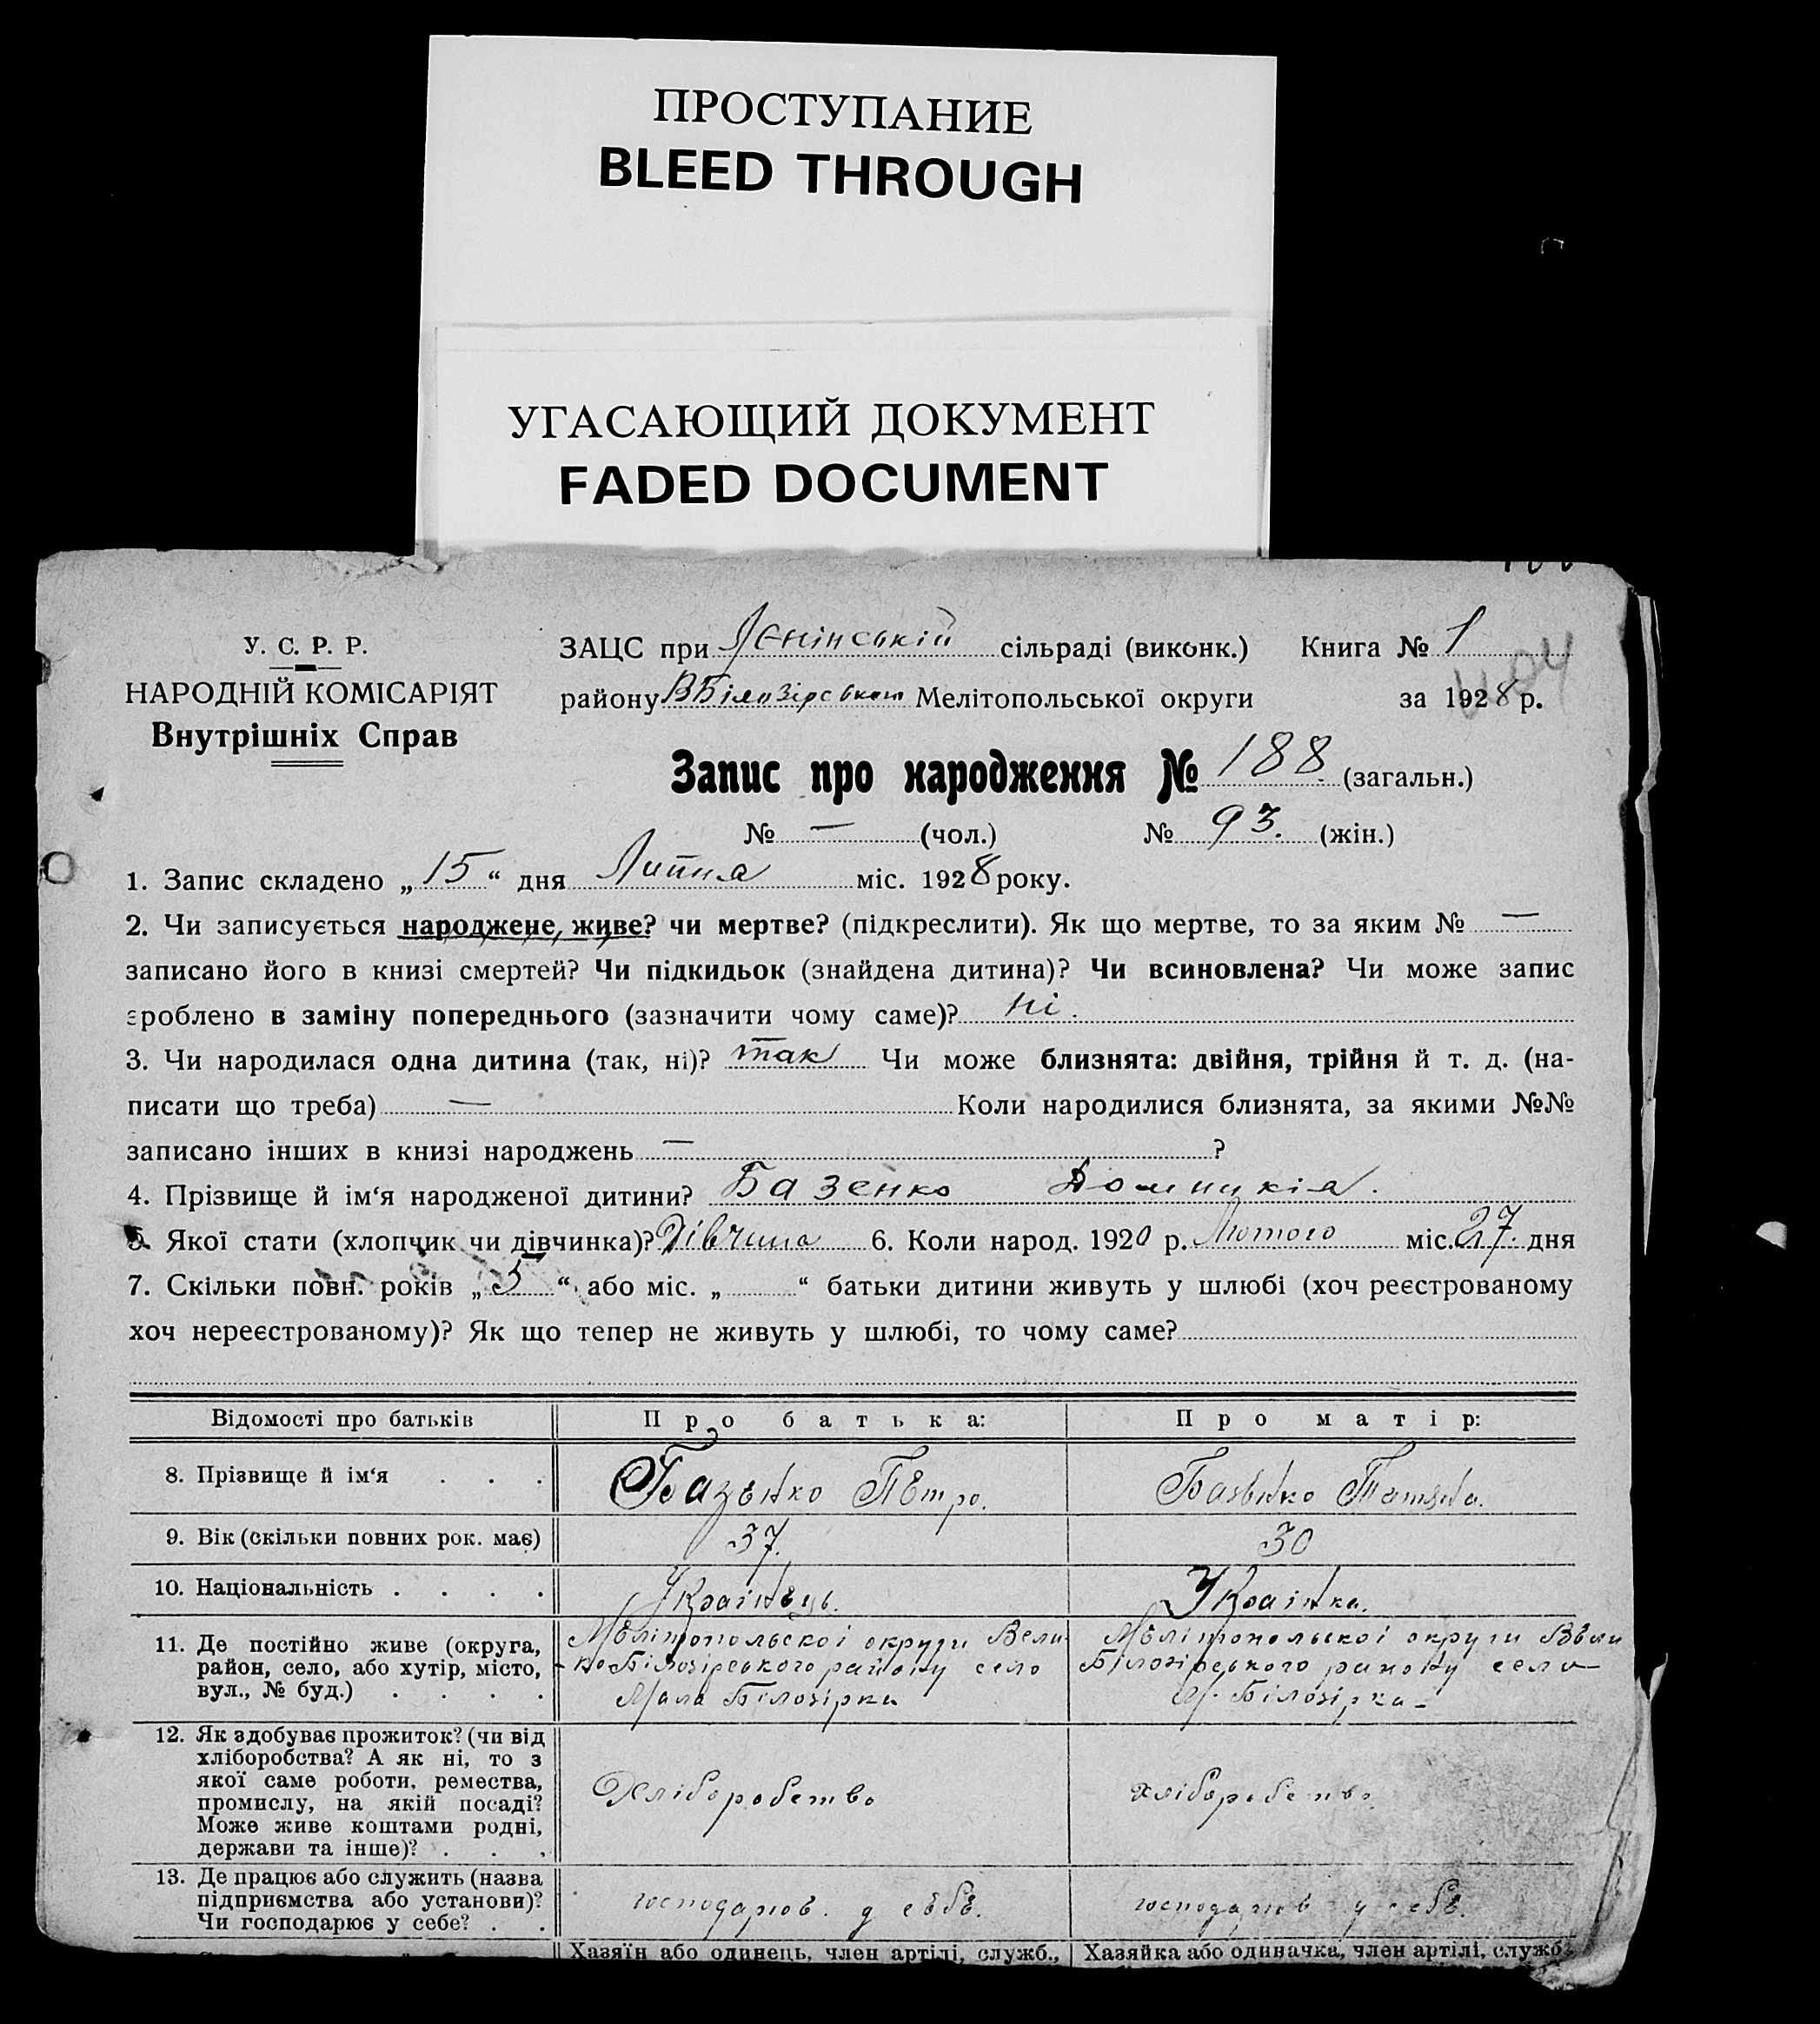 ПРОСТУПАНИЕ
BLEED THROUGH
УГАСАЮЩИЙ ДОКУМЕНТ
FADED DOCUMENT
У. С. Р. Р.
НАРОДНІЙ КОМІСАРІЯТ
Внутрішніх Справ
ЗАЦС при Ленінській сільраді (виконк.) Книга № 1
району ВБілозірського Мелітопольської округи за 1928 р.
Запис про народження № 188. (загальн.)
№ — (чол.) № 93. (жін.)
1. Запис складено „15“ дня Липня міс. 1928 року.
2. Чи записується народжене, живе? чи мертве? (підкреслити). Як що мертве, то за яким № —
записано його в книзі смертей? Чи підкидьок (знайдена дитина)? Чи всиновлена? Чи може запис
зроблено в заміну попереднього (зазначити чому саме)? ні.
3. Чи народилася одна дитина (так, ні)? так Чи може близнята: двійня, трійня й т. д. (на-
писати що треба) — Коли народилися близнята, за якими №№
записано інших в книзі народжень — ?
4. Прізвище й ім‘я народженої дитини? Базенко Домникія.
5. Якої стати (хлопчик чи дівчинка)? Дівчина 6. Коли народ. 1920 р. Лютого міс. 27. дня
7. Скільки повн. років „5“ або міс. „ “ батьки дитини живуть у шлюбі (хоч реєстрованому
хоч нереєстрованому)? Як що тепер не живуть у шлюбі, то чому саме?
Відомості про батьків Про батька: Про матір:
8. Прізвище й ім‘я . . . Базенко Петро. Базенко Татяна.
9. Вік (скільки повних рок. має) 37. 30
10. Національність . . . . Українець. Українка.
11. Де постійно живе (округа, Мелітопольскоі округи Вели Мелітопольскоі округи Вели
район, село, або хутір, місто, ко Білозірського району село Білозірського району село
вул., № буд.) . . . . Мала Білозірка М. Білозірка
12. Як здобуває прожиток? (чи від
хліборобства? А як ні, то з
якої саме роботи, ремества, Хліборобство хліборобство
промислу, на якій посаді?
Може живе коштами родні,
держави та інше)? . . .
13. Де працює або служить (назва
підприємства або установи)? господарює. у себе. господарює у себе.
Чи господарює у себе? . .
Хазяїн або одинець, член артілі, служб., Хазяйка або одиначка, член артілі, служб.